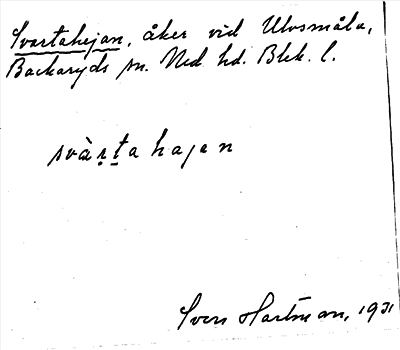 Svartahejan, åker vid Ulvsmåla,
Backaryds sn. Med hd. Blek. l.
svàṛṭa hajen
Sven Hartman, 1931